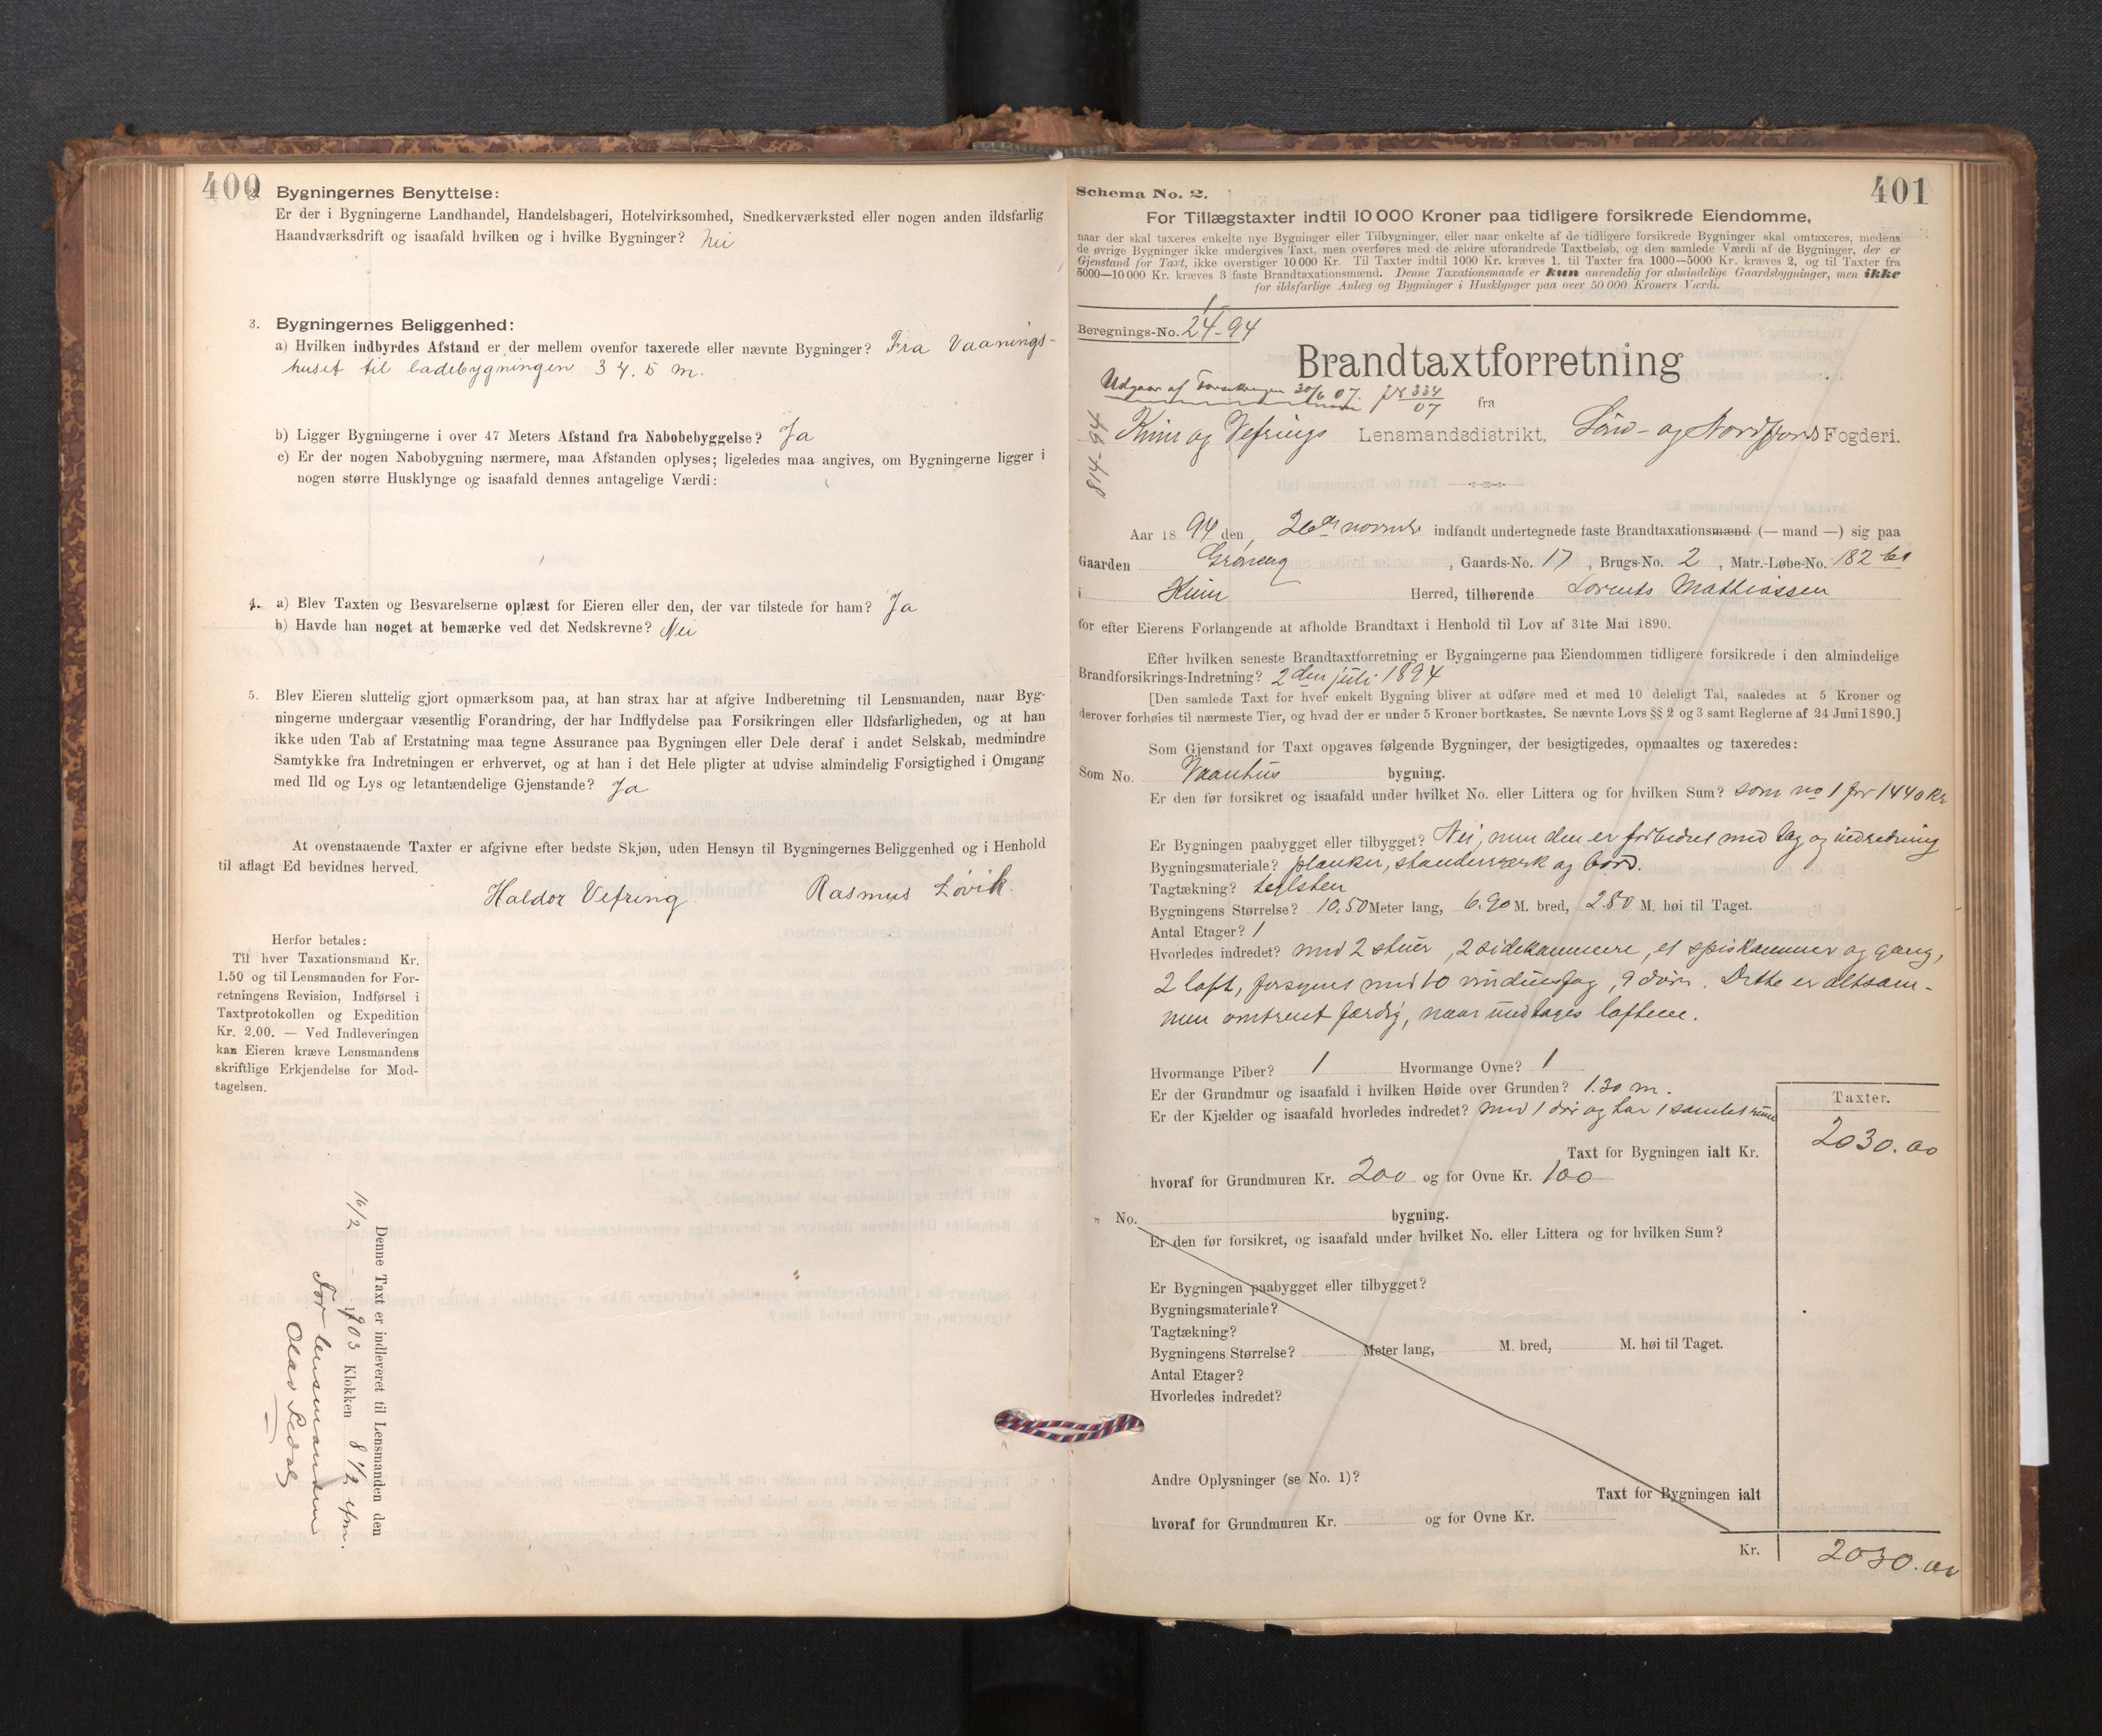 400
2. Bygningernes Benyttelse:
Er der i Bygningerne Landhandel, Handelsbageri, Hotelvirksomhed, Snedkerværksted eller nogen anden ildsfarlig
Haandværksdrift og isaafald hvilken og i hvilke Bygninger? Nei
3. Bygningernes Beliggenhed:
a) Hvilken indbyrdes Afstand er der mellem ovenfor taxerede eller nævnte Bygninger? Fra Vaanings-
huset til ladebygningen 34.5 m.
b) Ligger Bygningerne i over 47 Meters Afstand fra Nabobebyggelse? Ja
c) Er der nogen Nabobygning nærmere, maa Afstanden oplyses; ligeledes maa angives, om Bygningerne ligger i
nogen større Husklynge og isaafald dennes antagelige Værdi:
4. a) Blev Taxten og Besvarelserne oplæst for Eieren eller den, der var tilstede for ham? Ja
b) Havde han noget at bemærke ved det Nedskrevne? Nei
5. Blev Eieren sluttelig gjort opmærksom paa, at han strax har at afgive Indberetning til Lensmanden, naar Byg-
ningerne undergaar væsentlig Forandring, der har Indflydelse paa Forsikringen eller Ildsfarligheden, og at han
ikke uden Tab af Erstatning maa tegne Assurance paa Bygningen eller Dele deraf i andet Selskab, medmindre
Samtykke fra Indretningen er erhvervet, og at han i det Hele pligter at udvise almindelig Forsigtighed i Omgang
med Ild og Lys og letantændelige Gjenstande? Ja
At ovenstaaende Taxter er afgivne efter bedste Skjøn, uden Hensyn til Bygningernes Beliggenhed og i Henhold
til aflagt Ed bevidnes herved.
Haldor Vefring Rasmus Løvik
Herfor betales:
Til hver Taxationsmand Kr.
1.50 og til Lensmanden for For-
retningens Revision, Indførsel i
Taxtprotokollen og Expedition
Kr. 2.00. — Ved Indleveringen
kan Eieren kræve Lensmandens
skriftlige Erkjendelse for Mod-
tagelsen.
Denne Taxt er indleveret til Lensmanden den
16/2 - 1903 Klokken 8 1/2 efm.
For lensmanden
Olav
401
Schema No. 2.
For Tillægstaxter indtil 10 000 Kroner paa tidligere forsikrede Eiendomme,
naar der skal taxeres enkelte nye Bygninger eller Tilbygninger, eller naar enkelte af de tidligere forsikrede Bygninger skal omtaxeres, medens
de øvrige Bygninger ikke undergives Taxt, men overføres med de ældre uforandrede Taxtbeløb, og den samlede Værdi af de Bygninger, der er
Gjenstand for Taxt, ikke overstiger 10 000 Kr. Til Taxter indtil 1000 Kr. kræves 1, til Taxter fra 1000—5000 Kr. kræves 2, og til Taxter fra
5000—10 000 Kr. kræves 3 faste Brandtaxationsmænd. Denne Taxationsmaade er kun anvendelig for almindelige Gaardsbygninger, men ikke
for ildsfarlige Anlæg og Bygninger i Husklynger paa over 50 000 Kroners Værdi.
Beregnings-No. 24-94
Brandtaxtforretning
Udgaar af Forsikringen 30/6 07. 334/07
fra
814-94
Kinn og Vefrings Lensmandsdistrikt, Sønd- og Nordfjords Fogderi.
Aar 1894 den 26de novmbr indfandt undertegnede faste Brandtaxationsmænd (— mand —) sig paa
Gaarden Grøneng, Gaards-No. 17, Brugs-No. 2, Matr.-Løbe-No. 182 b1
i Kinn Herred, tilhørende Lorents Mathiassen
for efter Eierens Forlangende at afholde Brandtaxt i Henhold til Lov af 31te Mai 1890.
Efter hvilken seneste Brandtaxtforretning er Bygningerne paa Eiendommen tidligere forsikrede i den almindelige
Brandforsikrings-Indretning? 2den juli 1894
[Den samlede Taxt for hver enkelt Bygning bliver at udføre med et med 10 deleligt Tal, saaledes at 5 Kroner og
derover forhøies til nærmeste Tier, og hvad der er under 5 Kroner bortkastes. Se nævnte Lovs §§ 2 og 3 samt Reglerne af 24 Juni 1890.]
Som Gjenstand for Taxt opgaves følgende Bygninger, der besigtigedes, opmaaltes og taxeredes:
Som No. Vaanhus bygning.
Er den før forsikret og isaafald under hvilket No. eller Littera og for hvilken Sum? som no 1 for 1440 Kr
Er Bygningen paabygget eller tilbygget? Nei, men den er forbedret med tag og indredning
Bygningsmateriale? planker, standerverk og bord.
Tagtækning? teglsten
Bygningens Størrelse? 10.50 Meter lang, 6.90 M. bred, 2.80 M. høi til Taget.
Antal Etager? 1
Hvorledes indredet? med 2 stuer, 2 sidekammere, et spiskammer og gang,
2 loft, forsynet med 10 vinduesfag, 9 dører. Dette er altsam-
men omtrent færdig, naar undtages loftene.
Hvormange Piber? 1 Hvormange Ovne? 1
Er der Grundmur og isaafald i hvilken Høide over Grunden? 1.30 m.
Er der Kjælder og isaafald hvorledes indredet? med 1 dør og har 1 samlet rum
Taxter.
Taxt for Bygningen ialt Kr. 2030.00
hvoraf for Grundmuren Kr. 200 og for Ovne Kr. 100
„ No. bygning.
Er den før forsikret, og isaafald under hvilket No. eller Littera og for hvilken Sum?
Er Bygningen paabygget eller tilbygget?
Bygningsmateriale?
Tagtækning?
Bygningens Størrelse? Meter lang, M. bred, M. høi til Taget.
Antal Etager?
Hvorledes indredet?
Andre Oplysninger (se No. 1)?
Taxt for Bygningen ialt
hvoraf for Grundmuren Kr. og for Ovne Kr.
Kr. 2030.00